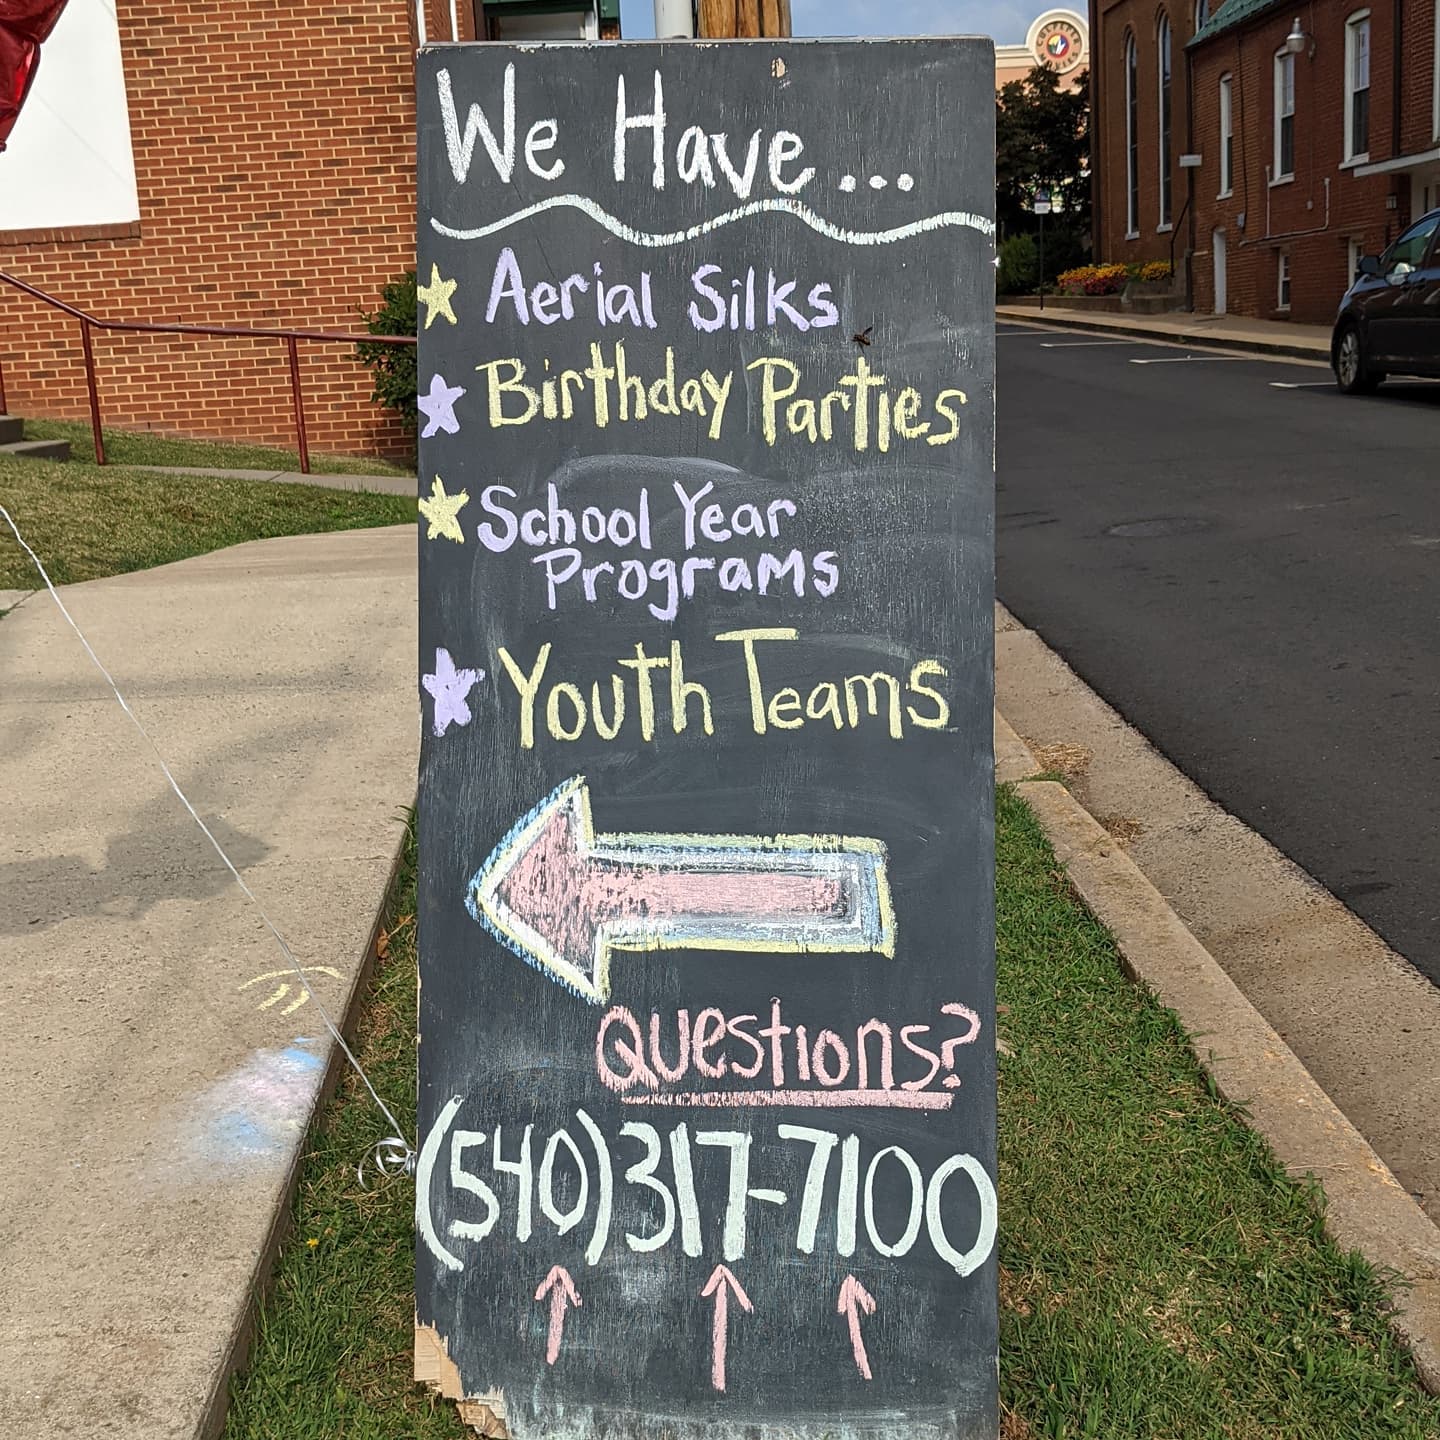 We Have...
Aerial Silks
Birthday Parties
School Year
Programs
Youth Teams
Questions?
(540)317-7100